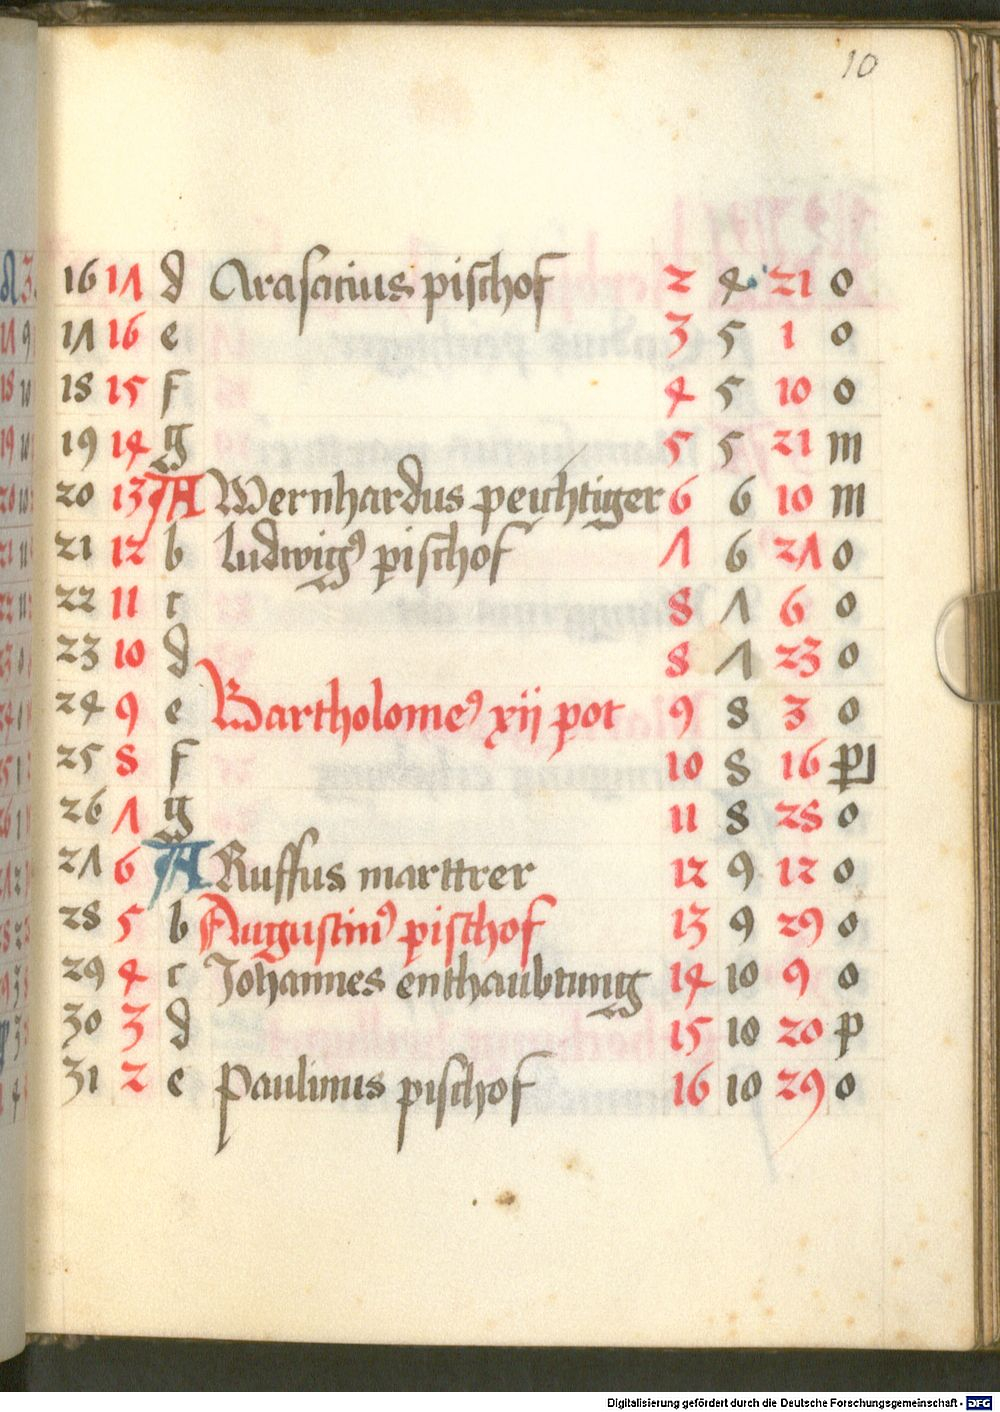 10
16 17 d Arasacius pischof 2 4 21 o
17 16 e 3 5 1 o
18 15 f 4 5 10 o
19 14 g 5 5 21 m
20 13 A Wernhardus peichtiger 6 6 10 m
21 12 b ludwigꝰ pischof 7 6 27 o
22 11 c 8 7 6 o
23 10 d 8 7 23 o
24 9 e Bartholomeꝰ xij pot 9 8 3 o
25 8 f 10 8 16
26 7 g 11 8 28 o
27 6 A Ruffus marttrer 12 9 12 o
28 5 b Augustinꝰ pischof 13 9 29 o
29 4 c Johannes enthaubtung 14 10 9 o
30 3 d 15 10 20 p
31 2 e Paulinus pischof 16 10 29 o
Digitalisierung gefördert durch die Deutsche Forschungsgemeinschaft - DFG